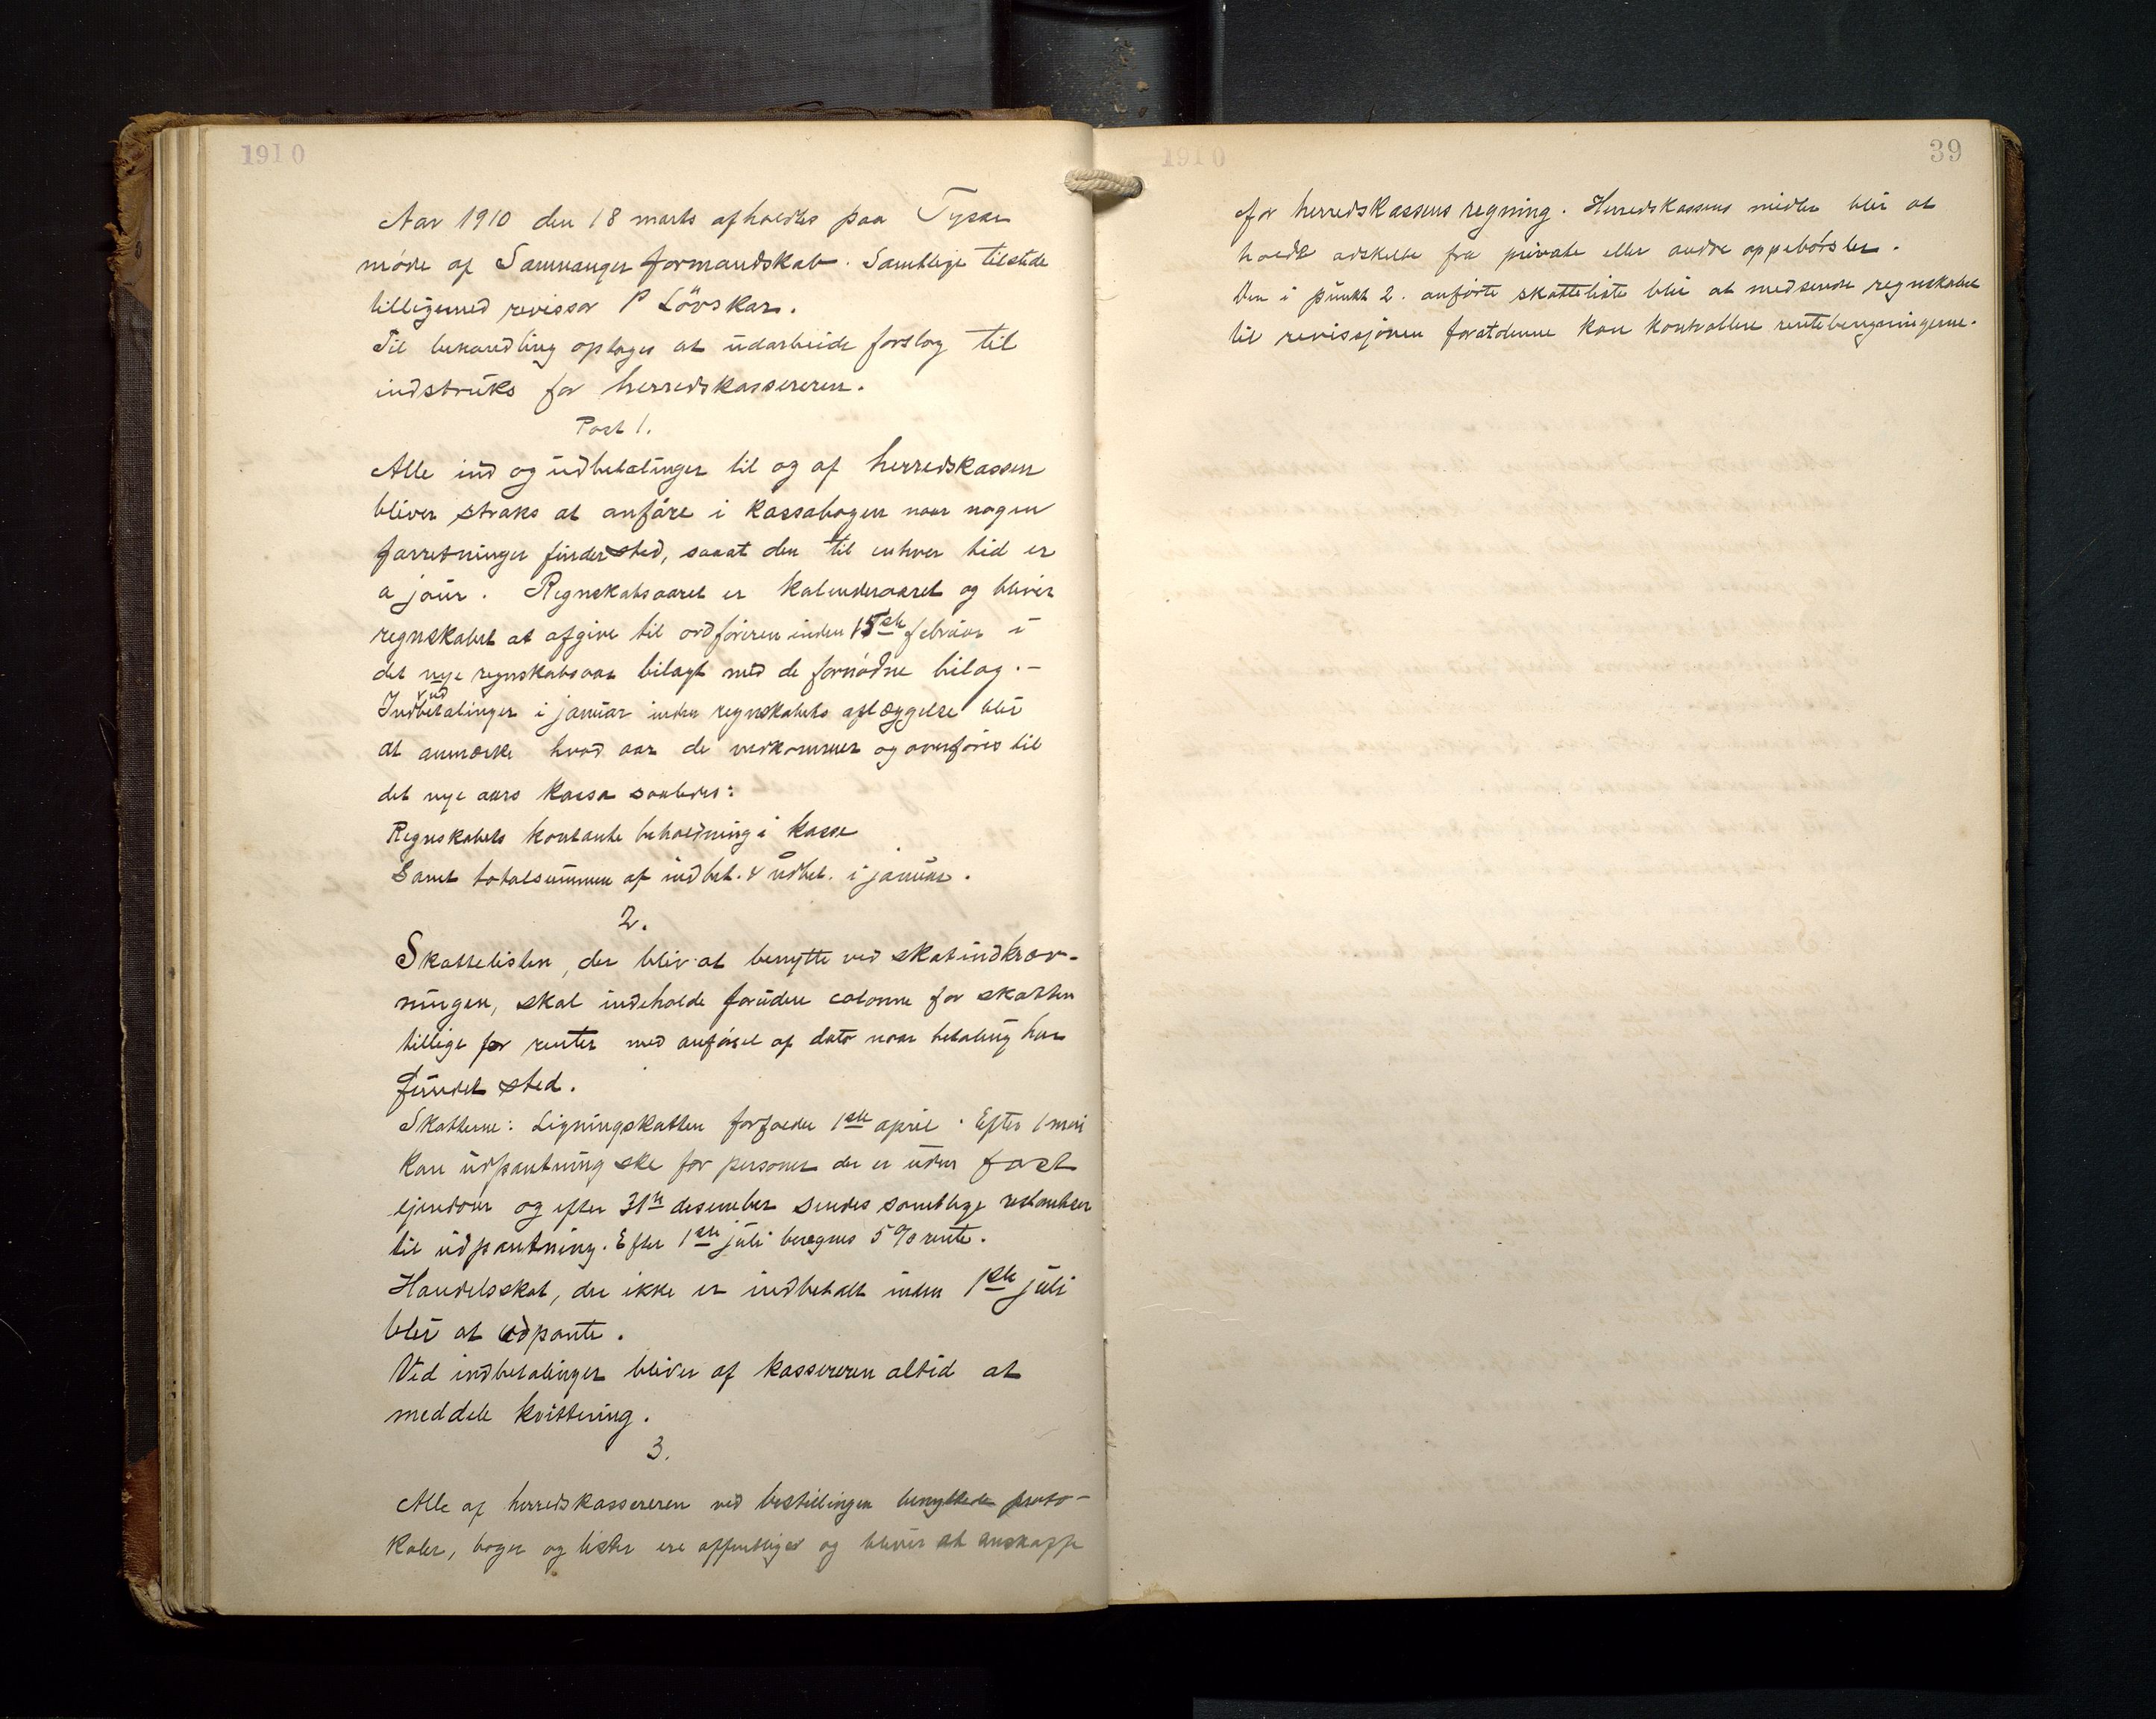 1910
Aar 1910 den 18 marts afholdtes paa Tysse
møde af Samnanger formandskab. Samtlige tilstede
tilligemed revisor P Lövskar.
Til behandling optoges at udarbeide forslag til
indstruks for herredskassereren.
Post 1.
Alle ind og udbetalinger til og af herredskassen
bliver straks at anføre i kassabogen naar nogen
forretninger finder sted, saaat den til enhver tid er
a jour. Regnskabsaaret er kalenderaaret og bliver
regnskabet at afgive til ordføreren inden 15de februar i
det nye regnskabsaar bilagt med de fornødne bilag.-
ud
Indbetalinger i januar inden regnskabets aflæggelse blir
at anmærke hvad aar de vedkommer og overføres til
det nye aars kassa saaledes:
Regnskabets kontante beholdning i kasse
Samt totalsummen af indbet. & udbet. i januar.
2.
Skattelisten, der blir at benytte ved skatindkræv-
ningen, skal indeholde foruden colonne for skatten
tillige for renter med anførsel af dato naar betaling har
fundet sted.
Skatterne: Ligningskatten forfalder 1ste april. Efter 1 mai
kan udpantning ske for personer der er uden fast
ejendom og efter 31te desember sendes samtlige restantser
til udpantning. Efter 1ste juli beregnes 5 % rente.
Handelsskat, der ikke er indbetalt inden 1ste juli
blir at udpante.
Ved indbetalinger bliver af kassereren altid at
meddele kvittering.
3.
Alle af herredskassereren ved bestillingen benyttede proto-
koler, bøger og lister ere offentliges og bliver at anskaffe
1910
39
for herredskassens regning. Herredskassens midler blir at
holde adskilte fra private eller andre oppebørsler.
Den i punkt 2. anførte skatteliste blir at medsende regnskabet
til revissjonen foratdenne kan kontrollere renteberegningerne.